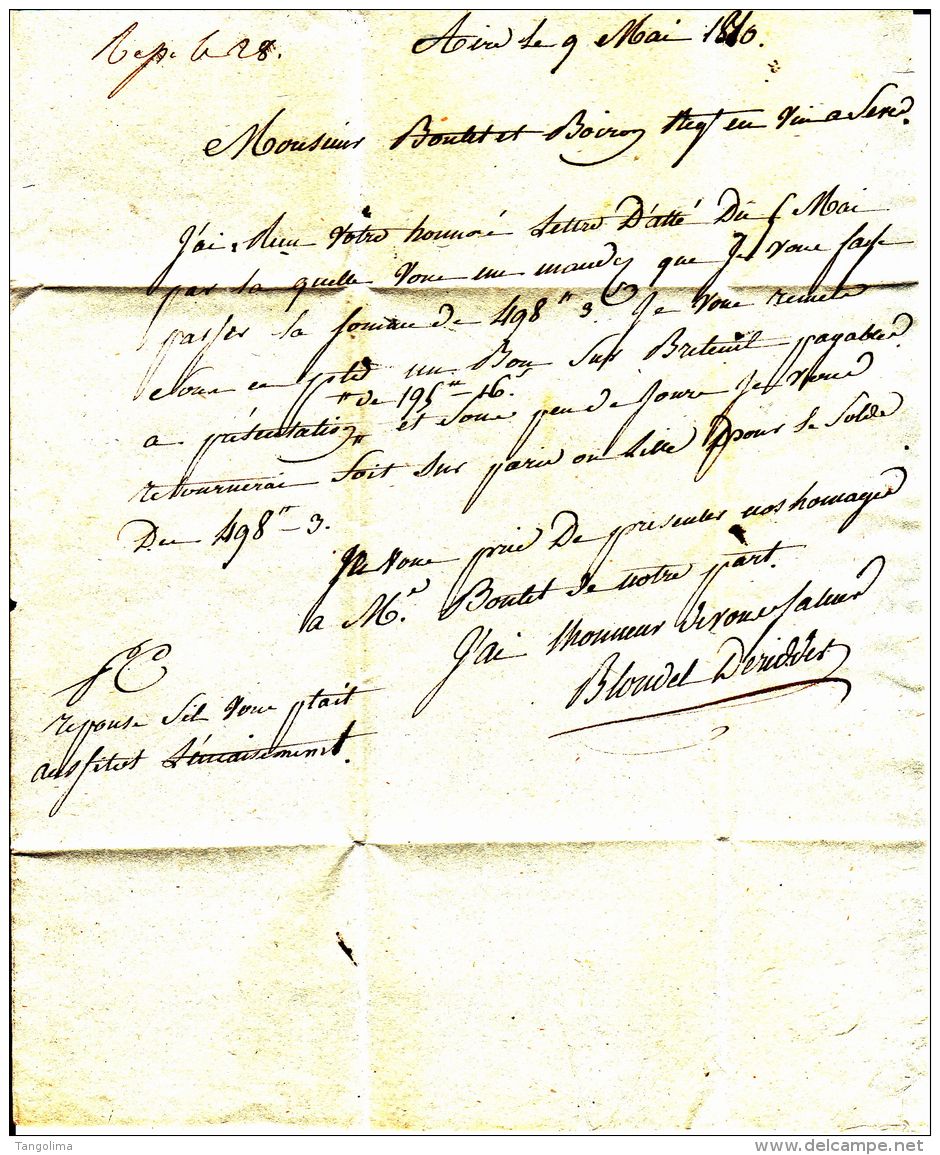 Rep. le 28.
Aire le 9 Mai 1810.
Monsieur Boulet et Boiron Negt en Vin a Sere
J'ai Recu Votre honnoré Lettre D'atté Du 5 Mai
par la quelle Vous me mandez que Je Vous fasse
passer la somme de 498" 3. Je vous remets
un Bon Sur Breteuil payable
"de 195"-16
a présentation " et Sous peu de Jours Je Vous
retournerai Soit Sur paris ou Lille pour le Solde
Des 498"-3.
Je Vous prie De presenter nos homages
a Mr. Boulet de notre part.
J'ai l'honneur de vous saluer
Blondel Deridder
reponse Sil Vous plait
aussitot
Tangolima
www.delcampe.net